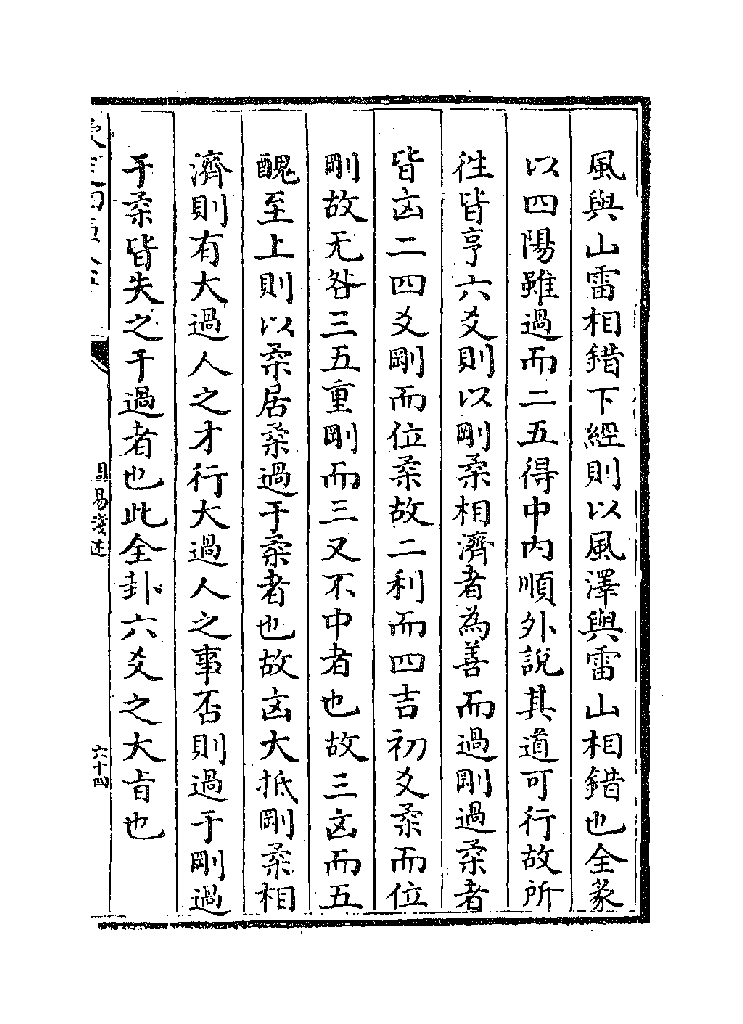 風與山雷相錯下經則以風澤與雷山相錯也全彖
以四陽雖過而二五得中内順外説其道可行故所
往皆亨六爻則以剛柔相濟者為善而過剛過柔者
皆凶二四爻剛而位柔故二利而四吉初爻柔而位
剛故无咎三五重剛而三又不中者也故三凶而五
醜至上則以柔居柔過于柔者也故凶大抵剛柔相
濟則有大過人之才行大過人之事否則過于剛過
于柔皆失之于過者也此全卦六爻之大旨也
周易淺述
六十四